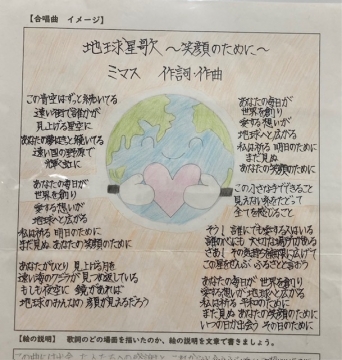 【合唱曲 イメージ】
地球星歌 〜笑顔のために〜
ミマス 作詞・作曲
この青空はずっと続いてる
遠い街で誰かが
見上げる星空に
あなたの夢はきっと続いてる
遠い国の野原で
あなたの毎日が
世界を創り
愛する想いが
地球へと広がる
私は祈る 明日のために
まだ見ぬ あなたの笑顔のために
あなたがひとり 見上げる月を
遠い海のクジラが 見つめ返している
もしも夜空に 鏡があれば
地球のみんなの 顔が見えるだろう
あなたの毎日が
世界を創り
愛する想いが
地球へと広がる
私は祈る 明日のために
まだ見ぬ
あなたの笑顔のために
この小さな手でできること
見えない糸をたどって
全てを感じること
そう! 誰にでも愛する人はいる
この星をぜんぶ ふるさとと言おう
あなたの毎日が 世界を創り
愛する想いが 地球へと広がる
私は祈る 平和のために
まだ見ぬ あなたの笑顔のために
いつの日か出会う その日のために
【絵の説明】 歌詞のどの場面を描いたのか、絵の説明を文章で書きましょう。